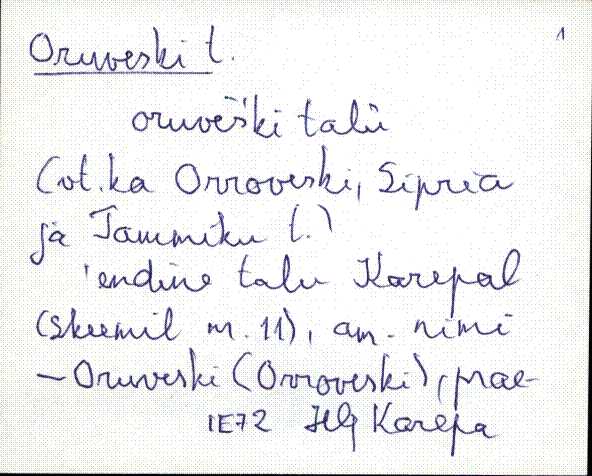 Oruveski t. 1
oruvèški talù
(vt. ka Orroveski, Sipria
ja Tammiku t.)
'endine talu Karepal
(skeemil nr. 11), am. nimi
– Oruveski (Orroveski), prae-
IE72 Karepa